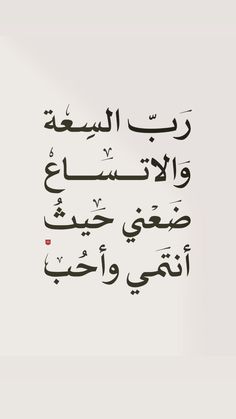 رَبّ السِعة
وَالاتـسَـاعْ
ضَعْني حَيثُ
أنتَمي وأحُب